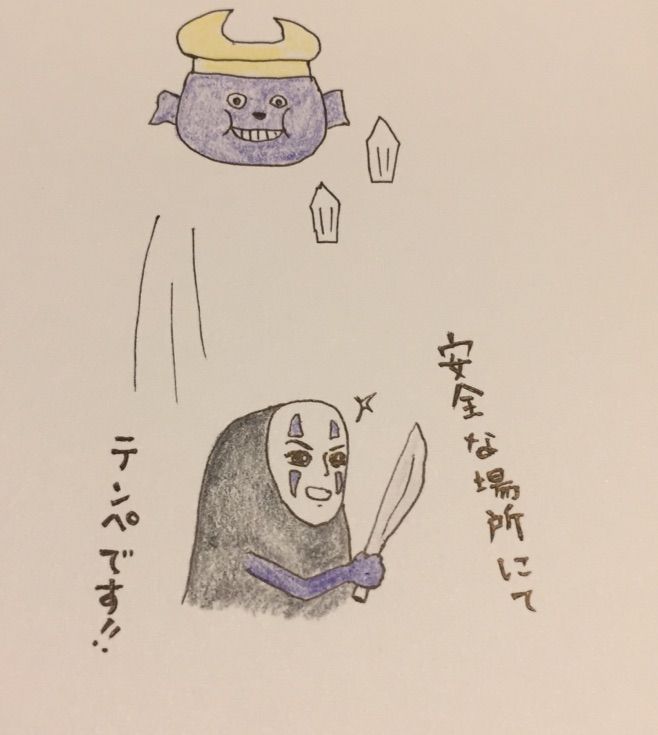 安全な場所にて
テンペです!!